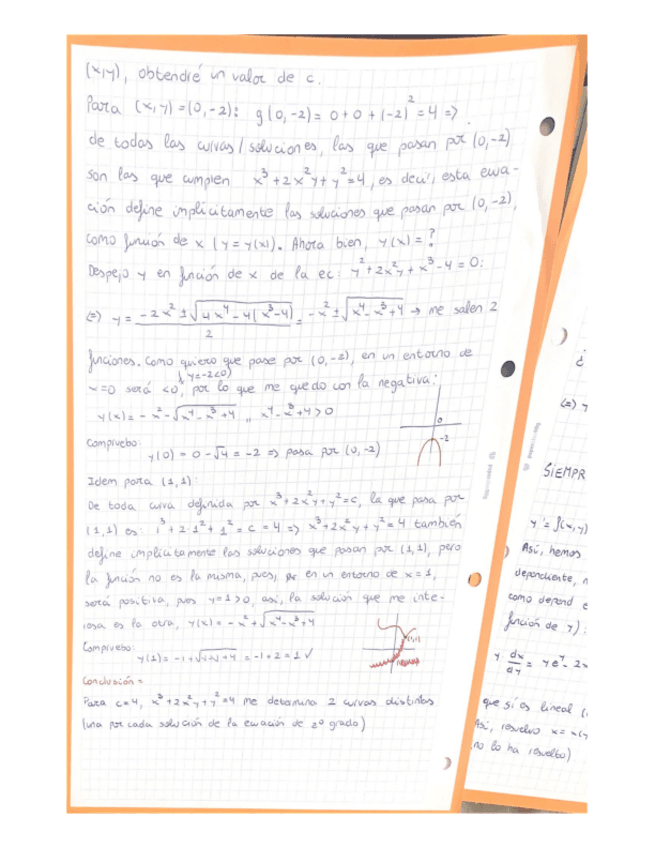 (x,y), obtendré un valor de c.
Para (x,y)=(0,-2): g(0,-2)= 0+0+(-2)²=4 =>
de todas las curvas/soluciones, las que pasan por (0,-2)
son las que cumplen x³+2x²y+y²=4, es decir, esta ecua-
ción define implícitamente las soluciones que pasan por (0,-2),
como función de x (y=y(x)). Ahora bien, y(x)=?
Despejo y en función de x de la ec: y²+2x²y+x³-4=0:
(=) y = (-2x² ± √(4x⁴-4(x³-4)))/2 = -x² ± √(x⁴-x³+4) → me salen 2
funciones. Como quiero que pase por (0,-2), en un entorno de
(y=-2<0)
x=0 será <0, por lo que me quedo con la negativa:
y(x)= -x²-√(x⁴-x³+4) ,, x⁴-x³+4>0
0
-2
Compruebo:
y(0)= 0-√4 = -2 => pasa por (0,-2)
Idem para (1,1):
De toda curva definida por x³+2x²y+y²=c, la que pasa por
(1,1) es: 1³+2·1²+1²=c=4 => x³+2x²y+y²=4 también
define implícitamente las soluciones que pasan por (1,1), pero
la función no es la misma, pues, en un entorno de x=1,
será positiva, pues y=1>0, así, la solución que me inte-
resa es la otra, y(x)= -x²+√(x⁴-x³+4)
(1,1)
Compruebo:
y(1)= -1+√(1-1+4) = -1+2=1 ✓
Conclusión =
Para c=4, x³+2x²y+y²=4 me determina 2 curvas distintas
(una por cada solución de la ecuación de 2º grado)
¿
(=) y
SIEMPR
y'=f(x,y)
Así, hemos
dependiente,
como depend
función de y):
y dx/dy = ye^y - 2x
que sí es lineal
Así, resuelvo x=x(y
no lo ha resuelto)